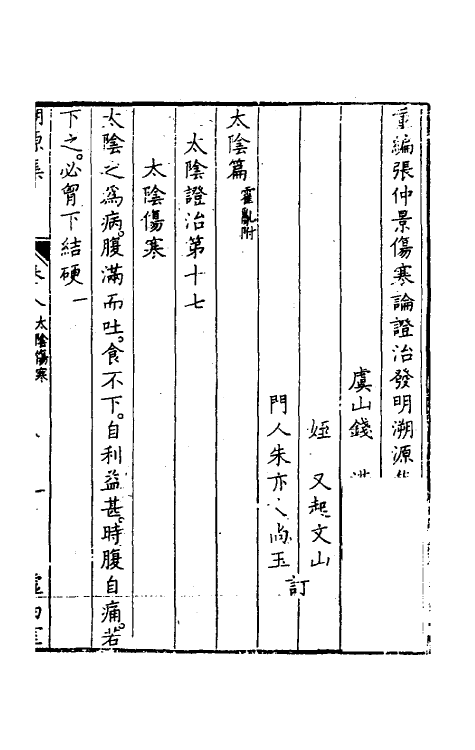 重編張仲景傷寒論證治發明溯源集
虞山錢
姪 又起文山
門人朱亦 尚玉
訂
太陰篇 霍亂附
太陰證治第十七
太陰傷寒
太陰之爲病。腹滿而吐。食不下。自利益甚。時腹自痛。若
下之。必胷下結硬一
溯源集
卷八 太陰傷寒
一